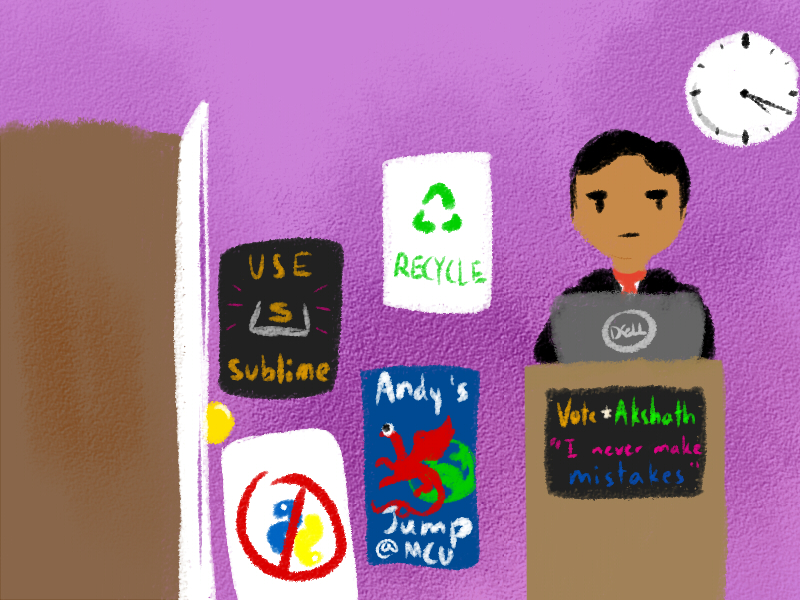 USE
S
Sublime
RECYCLE
Andy's
Jump
@MCU
DELL
Vote*Akshath
"I never make
mistakes"